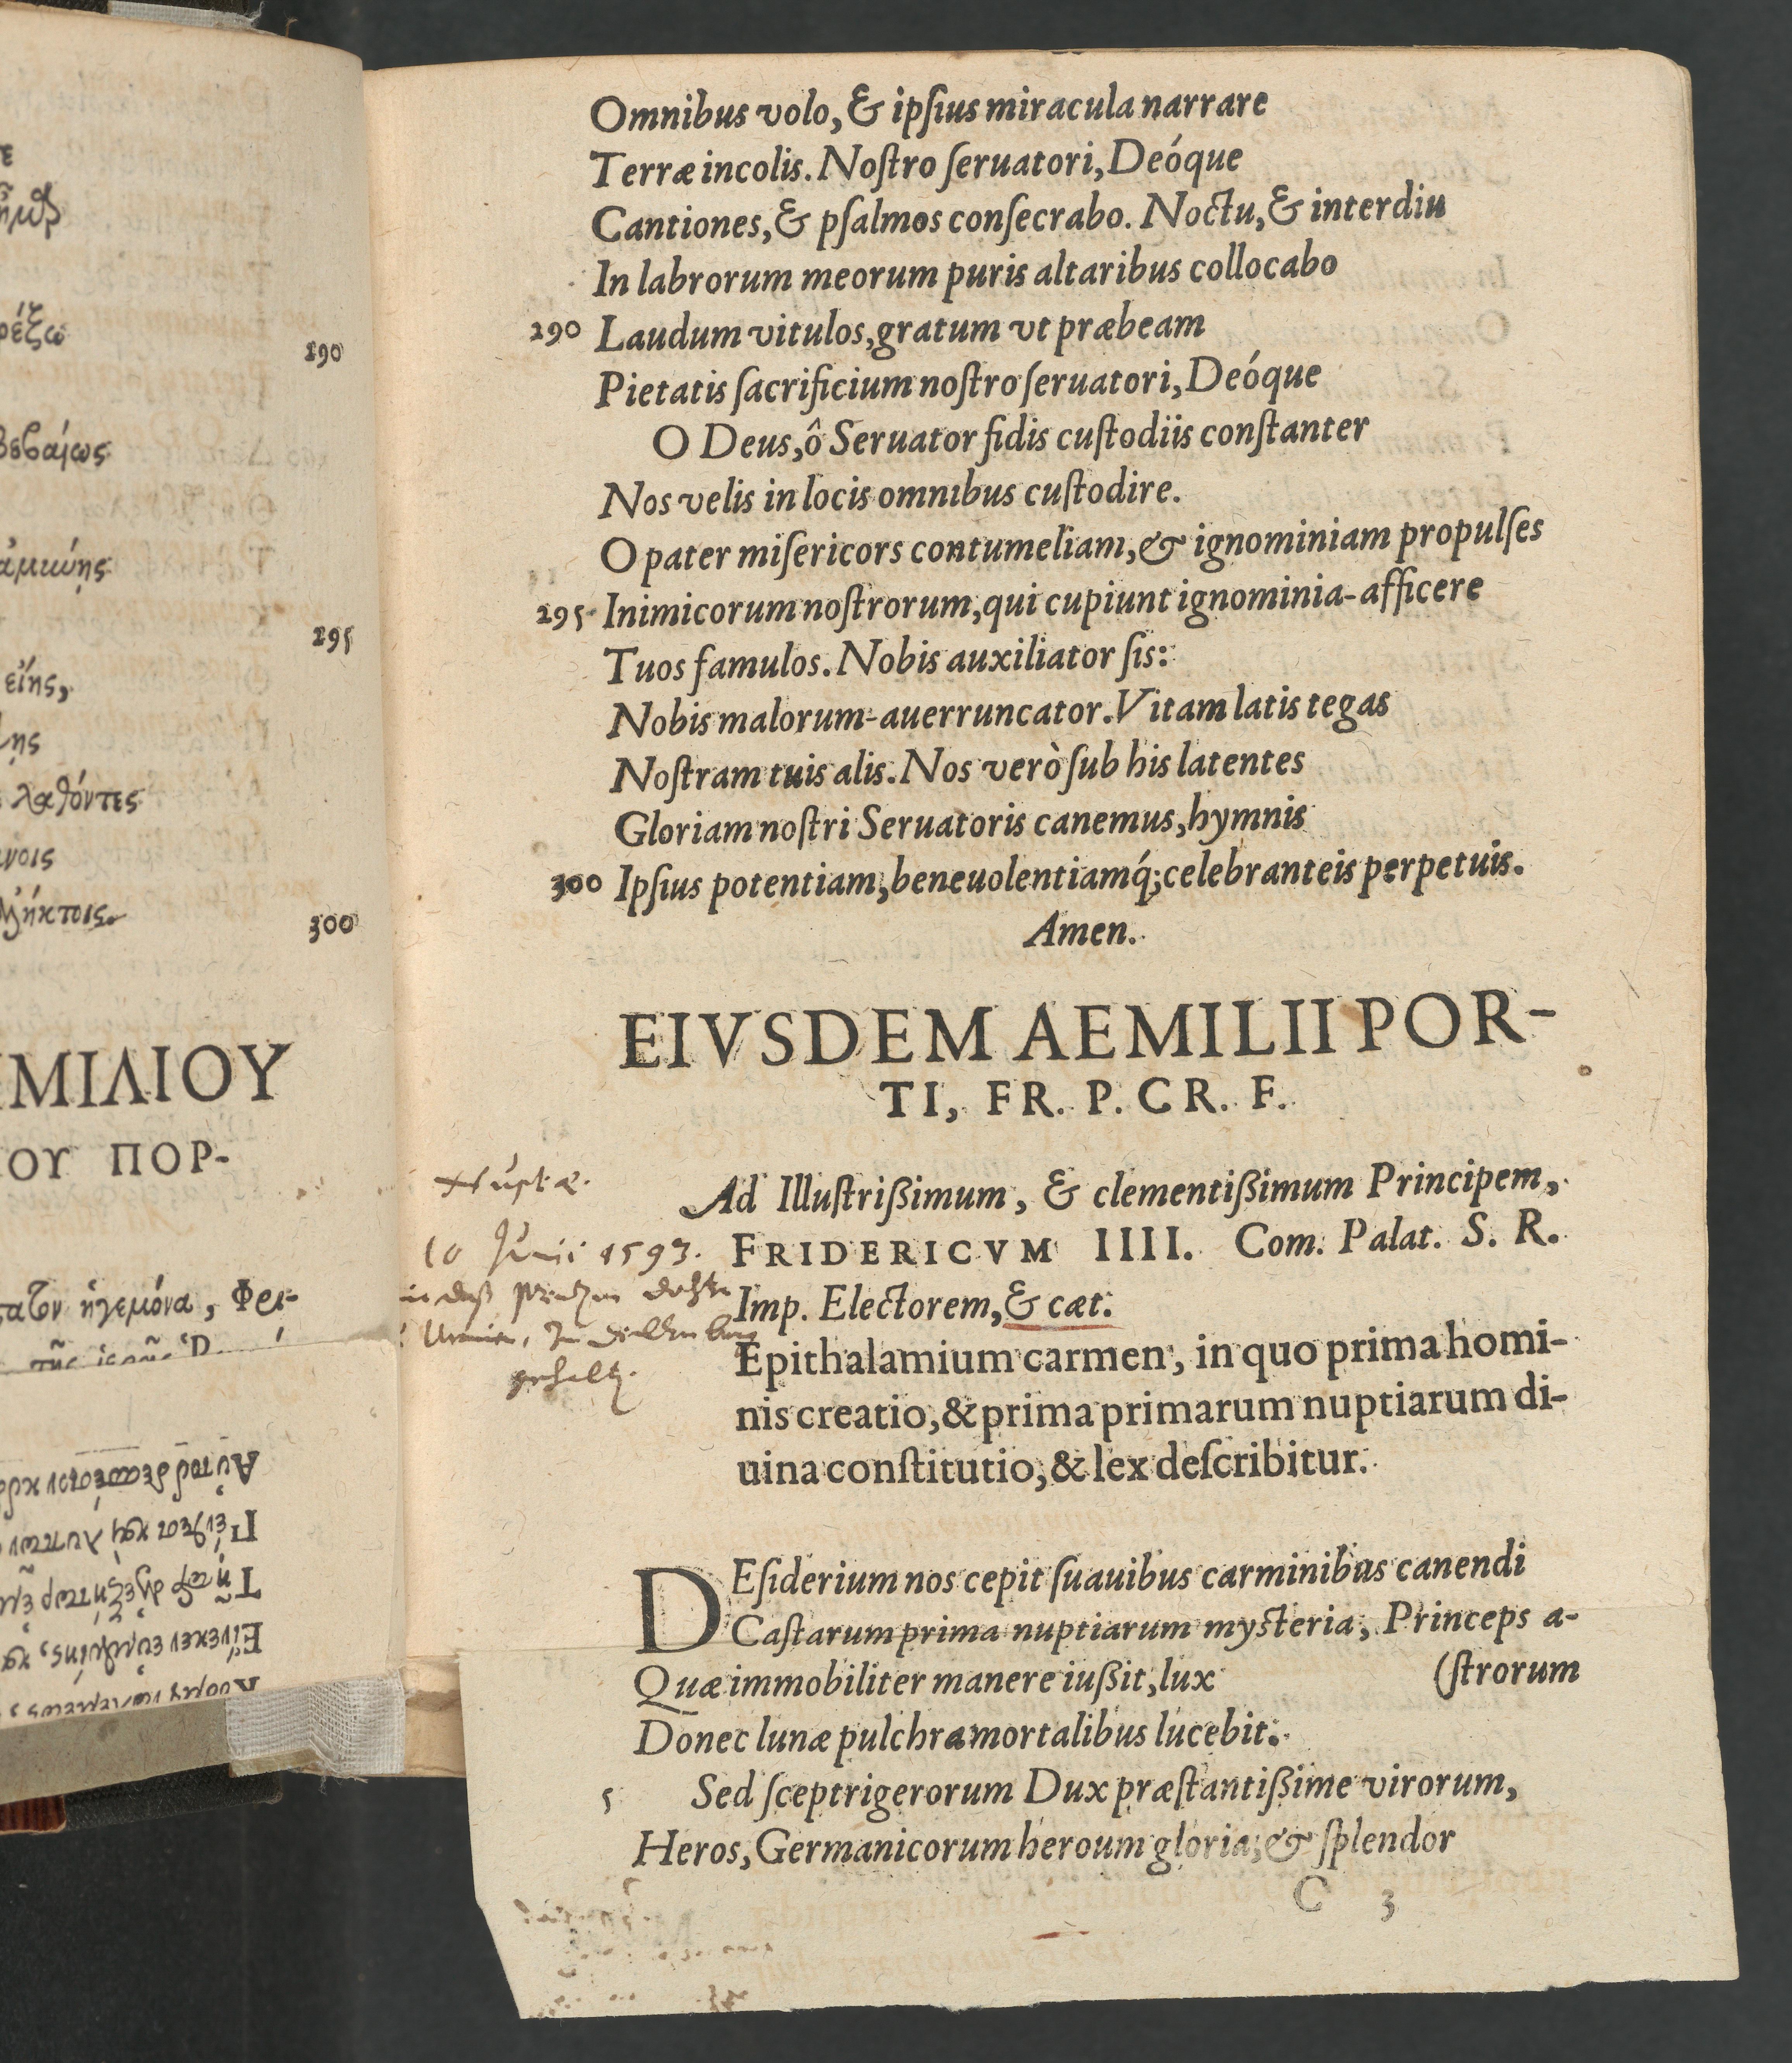 Omnibus volo, & ipsius miracula narrare
Terræ incolis. Nostro seruatori, Deóque
Cantiones, & psalmos consecrabo. Noctu, & interdiu
In labrorum meorum puris altaribus collocabo
290 Laudum vitulos, gratum vt præbeam
Pietatis sacrificium nostro seruatori, Deóque
O Deus, ô Seruator fidis custodiis constanter
Nos velis in locis omnibus custodire.
O pater misericors contumeliam, & ignominiam propulses
295 Inimicorum nostrorum, qui cupiunt ignominia-afficere
Tuos famulos. Nobis auxiliator sis:
Nobis malorum-auerruncator. Vitam latis tegas
Nostram tuis alis. Nos verò sub his latentes
Gloriam nostri Seruatoris canemus, hymnis
300 Ipsius potentiam, beneuolentiamq́; celebranteis perpetuis.
Amen.
EIVSDEM AEMILII POR-
TI, FR. P. CR. F.
Ad Illustrißimum, & clementißimum Principem,
FRIDERICVM IIII. Com. Palat. S. R.
Imp. Electorem, & cæt.
Epithalamium carmen, in quo prima homi-
nis creatio, & prima primarum nuptiarum di-
uina constitutio, & lex describitur.
Nuptæ.
10 Junii 1593.
DEsiderium nos cepit suauibus carminibus canendi
Castarum prima nuptiarum mysteria, Princeps a-
Quæ immobiliter manere iußit, lux (strorum
Donec lunæ pulchra mortalibus lucebit.
5 Sed sceptrigerorum Dux præstantißime virorum,
Heros, Germanicorum heroum gloria, & splendor
C 3
290
295
λαθόντες
300
ΜΙΛΙΟΥ
ΟΥ ΠΟΡ-
ἡγεμόνα, Φρι-